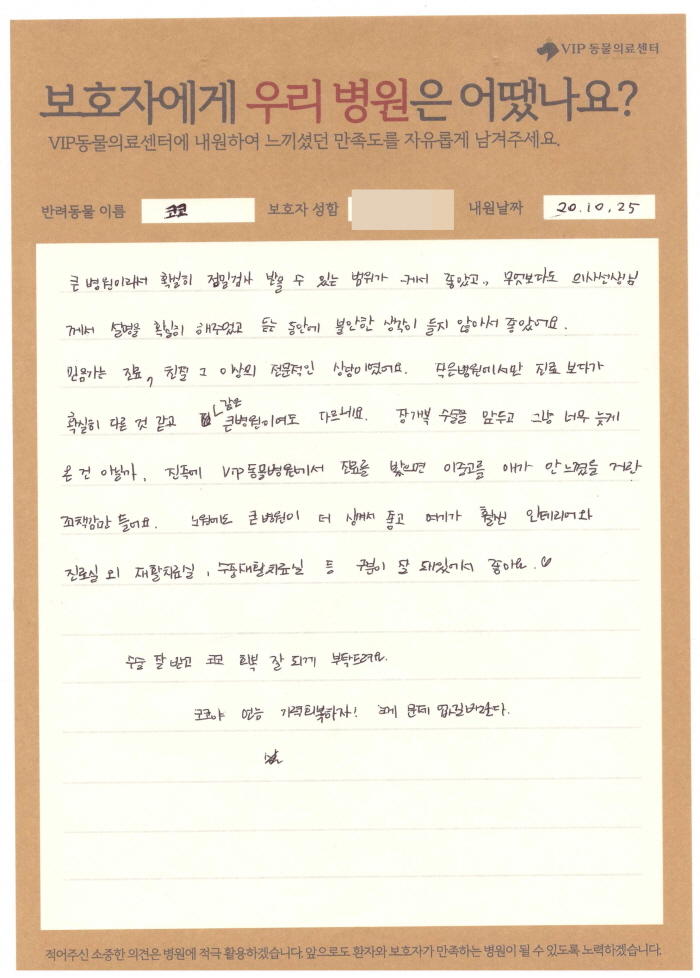 VIP 동물의료센터
보호자에게 우리 병원은 어땠나요?
VIP동물의료센터에 내원하여 느끼셨던 만족도를 자유롭게 남겨주세요.
반려동물 이름 코코 보호자 성함 내원날짜 20.10.25
큰 병원이라서 확실히 정밀검사 받을 수 있는 범위가 커서 좋았고, 무엇보다도 의사선생님
께서 설명을 확실히 해주었고 듣는 동안에 불안한 생각이 들지 않아서 좋았어요.
믿음가는 진료, 친절 그 이상의 전문적인 상담이였어요. 작은병원에서만 진료 보다가
확실히 다른 것 같고 같은 큰병원이여도 다르네요. 장개복 수술을 앞두고 그냥 너무 늦게
온 건 아닐까, 진즉에 VIP동물병원에서 진료를 봤으면 이증고를 애가 안느꼈을 거란
죄책감만 들어요. 노원에도 큰병원이 더 생겨서 좋고 여기가 훨씬 인테리어와
진료실 외 재활치료실, 수중재활치료실 등 구분이 잘 돼있어서 좋아요.♡
수술 잘 받고 코코 회복 잘 되게 부탁드려요.
코코야 얼른 기력회복하자! 문제 없길바란다.
적어주신 소중한 의견은 병원에 적극 활용하겠습니다. 앞으로도 환자와 보호자가 만족하는 병원이 될 수 있도록 노력하겠습니다.